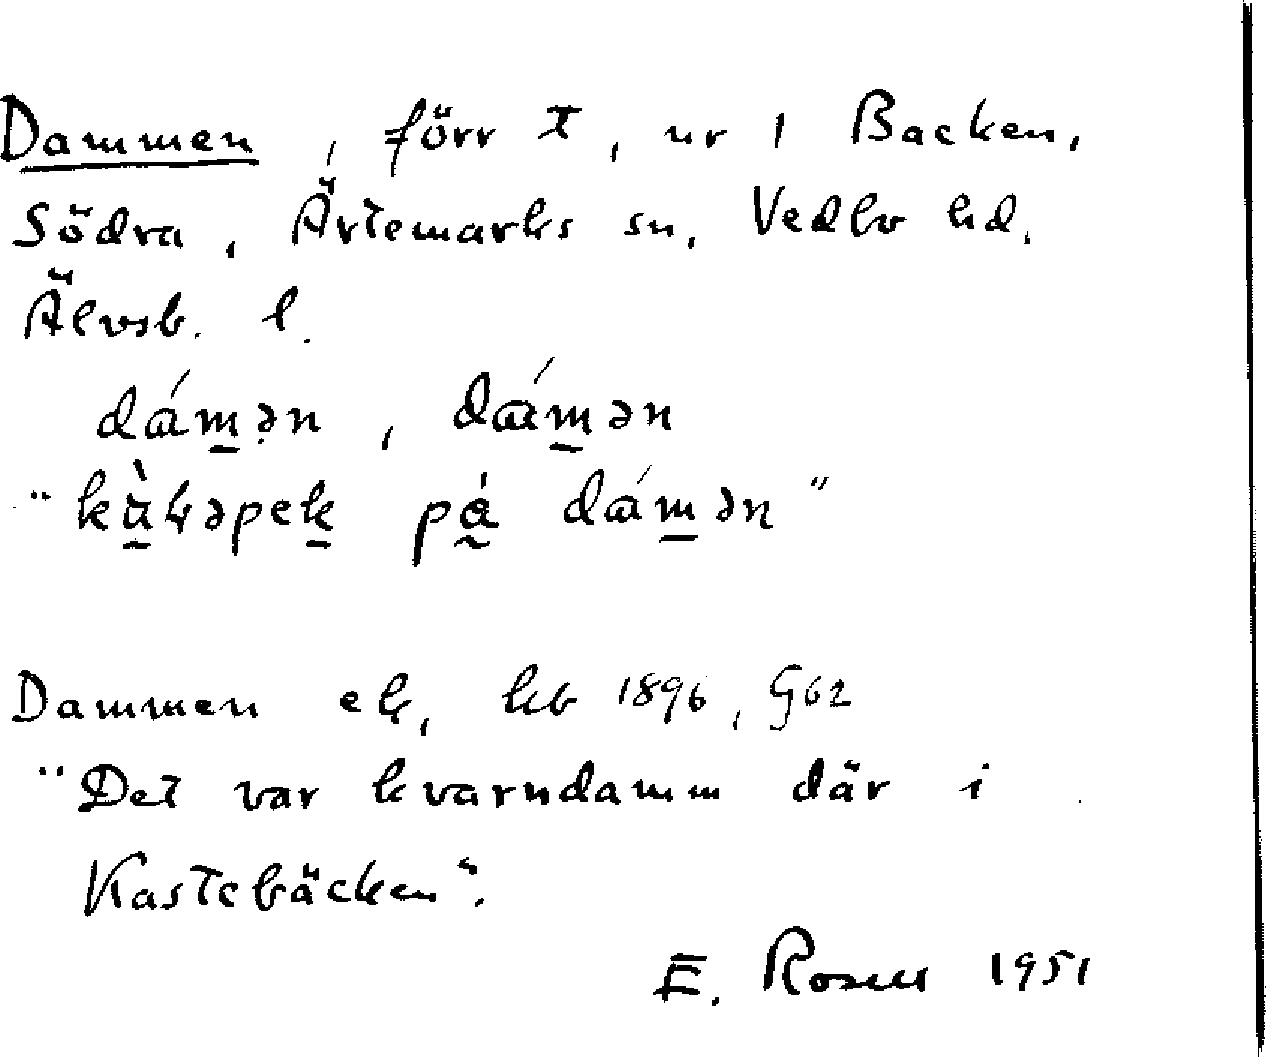 Dammen, förr t, ur 1 Backen,
Södra, Ärtemarks sn, Vedbo hd,
Älvsb. l.
dám̲ən, dám̲ən
pá dám̲ən"
Dammen lkb 1896, G62
"Det var kvarndamm där i
Kastebäcken".
E. Rosell 1951